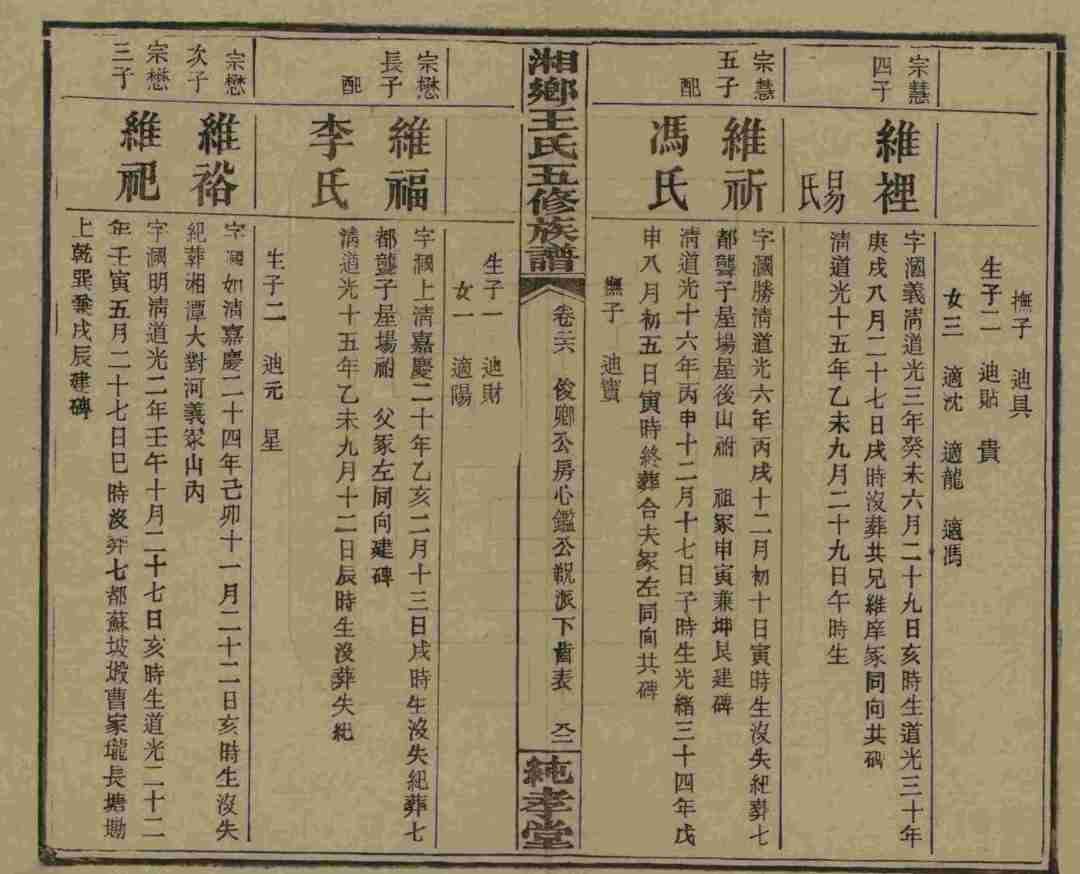 撫子 迪具
生子二 迪貼 貴
女三 適沈 適龍 適馮
宗慧四子
維裡
易氏
字濶義清道光三年癸未六月二十九日亥時生道光三十年
庚戌八月二十七日戌時沒葬共兄維庠冢同向共碑
清道光十五年乙未九月二十九日午時生
宗慧五子
維祈
配
馮氏
字濶勝清道光六年丙戌十二月初十日寅時生沒失紀葬七
都聾子屋場屋後山祔 祖冢申寅兼坤艮建碑
清道光十六年丙申十二月十七日子時生光緒三十四年戊
申八月初五日寅時終葬合夫冢左同向共碑
撫子 迪寳
湘鄉王氏五修族譜
卷 俊卿公房心鑑公 派下齒表
純孝堂
生子一 迪財
女一 適陽
宗懋長子
維福
配
李氏
字濶上清嘉慶二十年乙亥二月十三日戌時生沒失紀葬七
都聾子屋場祔 父冢左同向建碑
清道光十五年乙未九月十二日辰時生沒葬失紀
生子二 迪元 星
宗懋次子
維裕
字濶如清嘉慶二十四年己卯十一月二十二日亥時生沒失
紀葬湘潭大對河義冢山內
宗懋三子
維祀
字濶明清道光二年壬午十月二十七日亥時生道光二十二
年壬寅五月二十七日巳時沒葬七都蘇坡塅曹家壠長塘勘
上乾巽兼戌辰建碑